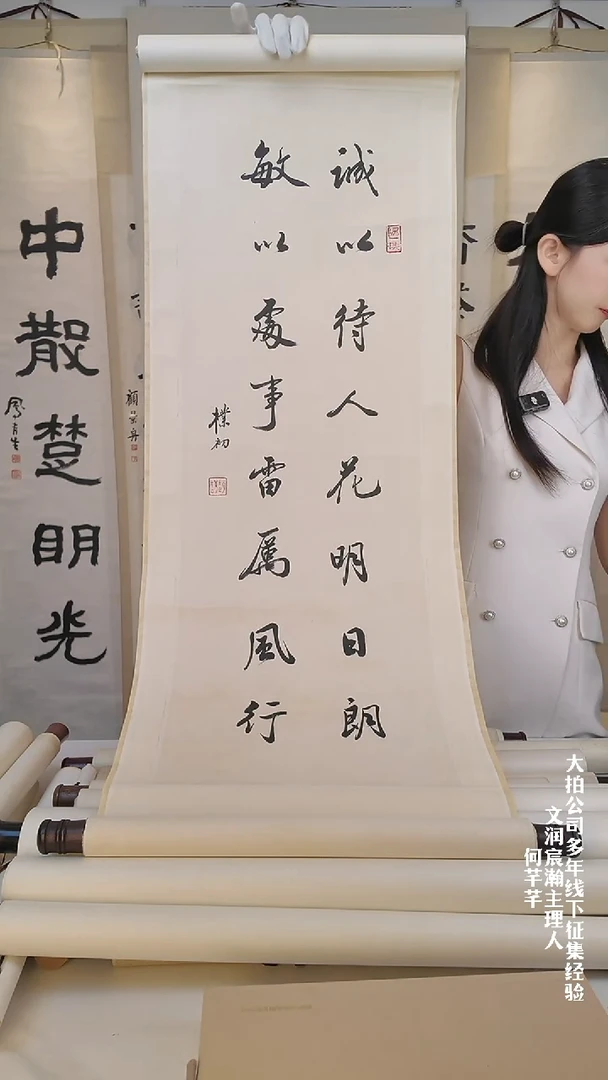 誠以待人花明日朗
敏以處事雷厲風行
樸初
中散楚明光
大拍公司多年线下征集经验
文润宸瀚主理人
何芊芊